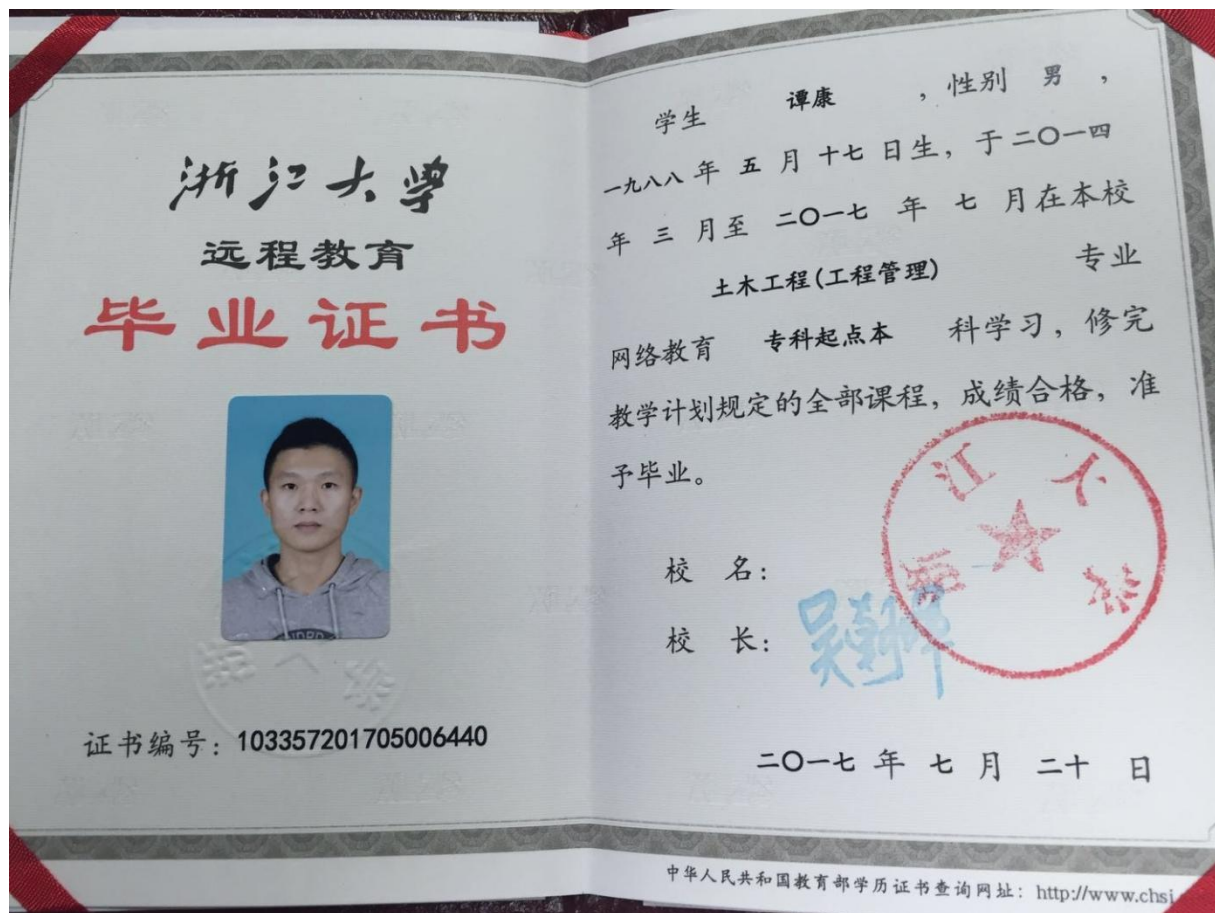 浙江大学
远程教育
毕业证书
证书编号：103357201705006440
学生 谭康 ，性别 男 ，
一九八八 年 五 月 十七 日生，于 二〇一四
年 三 月至 二〇一七 年 七 月在本校
土木工程(工程管理) 专业
网络教育 专科起点本 科学习，修完
教学计划规定的全部课程，成绩合格，准
予毕业。
浙江大学
校 名：
校 长：
二〇一七 年 七 月 二十 日
中华人民共和国教育部学历证书查询网址：http://www.chsi.